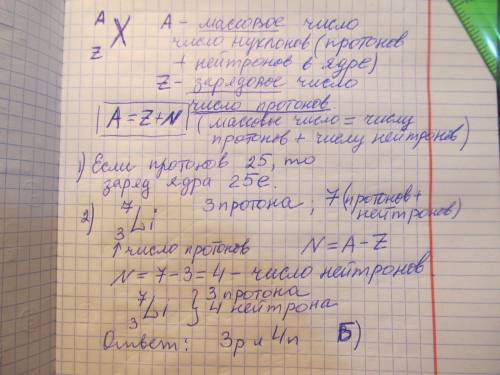 A
Z X A - массовое число
число нуклонов (протонов
+ нейтронов в ядре)
Z - зарядовое число
число протонов
A = Z + N
(массовое число = числу
протонов + числу нейтронов)
1) Если протонов 25, то
заряд ядра 25е.
2) 7 3 Li 3 протона; 7 (протонов +
нейтронов)
↑ число протонов N = A - Z
N = 7 - 3 = 4 - число нейтронов
7 3 Li } 3 протона
4 нейтрона
Ответ: 3p и 4n Б)